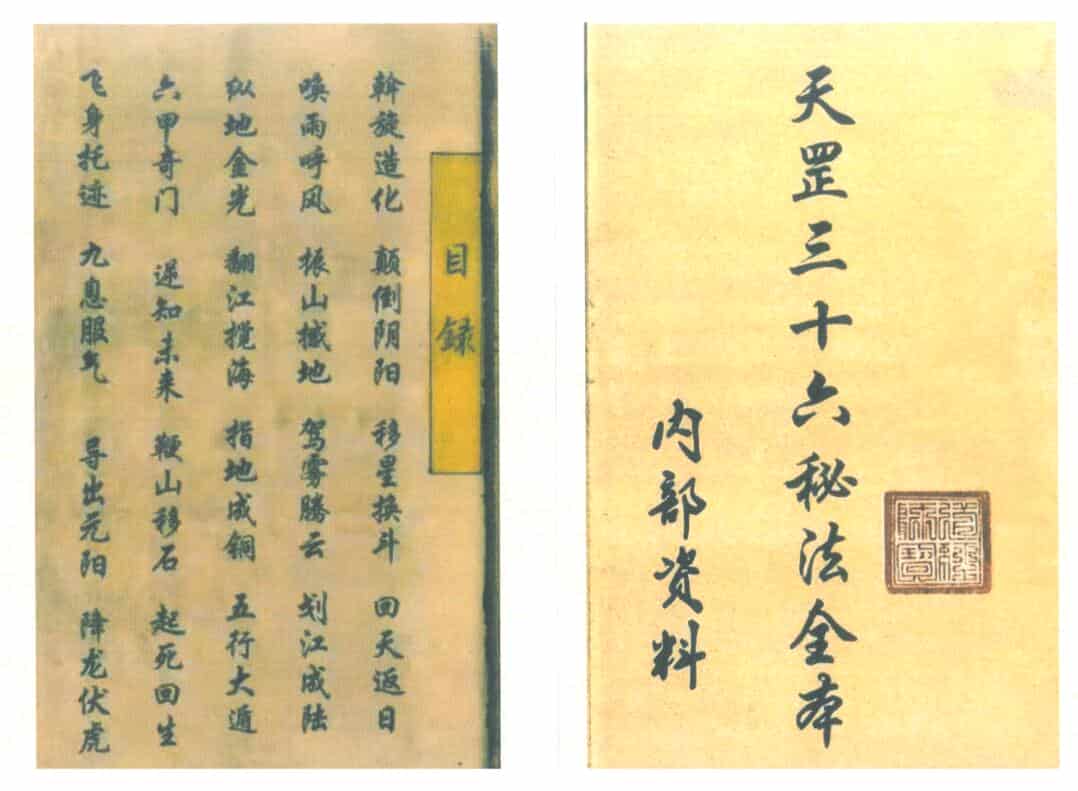 道經師寶
天罡三十六秘法全本
内部资料
目录
斡旋造化 颠倒阴阳 移星换斗 回天返日
唤雨呼风 振山撼地 驾雾腾云 划江成陆
纵地金光 翻江搅海 指地成钢 五行大遁
六甲奇门 逆知未来 鞭山移石 起死回生
飞身托迹 九息服气 导出元阳 降龙伏虎